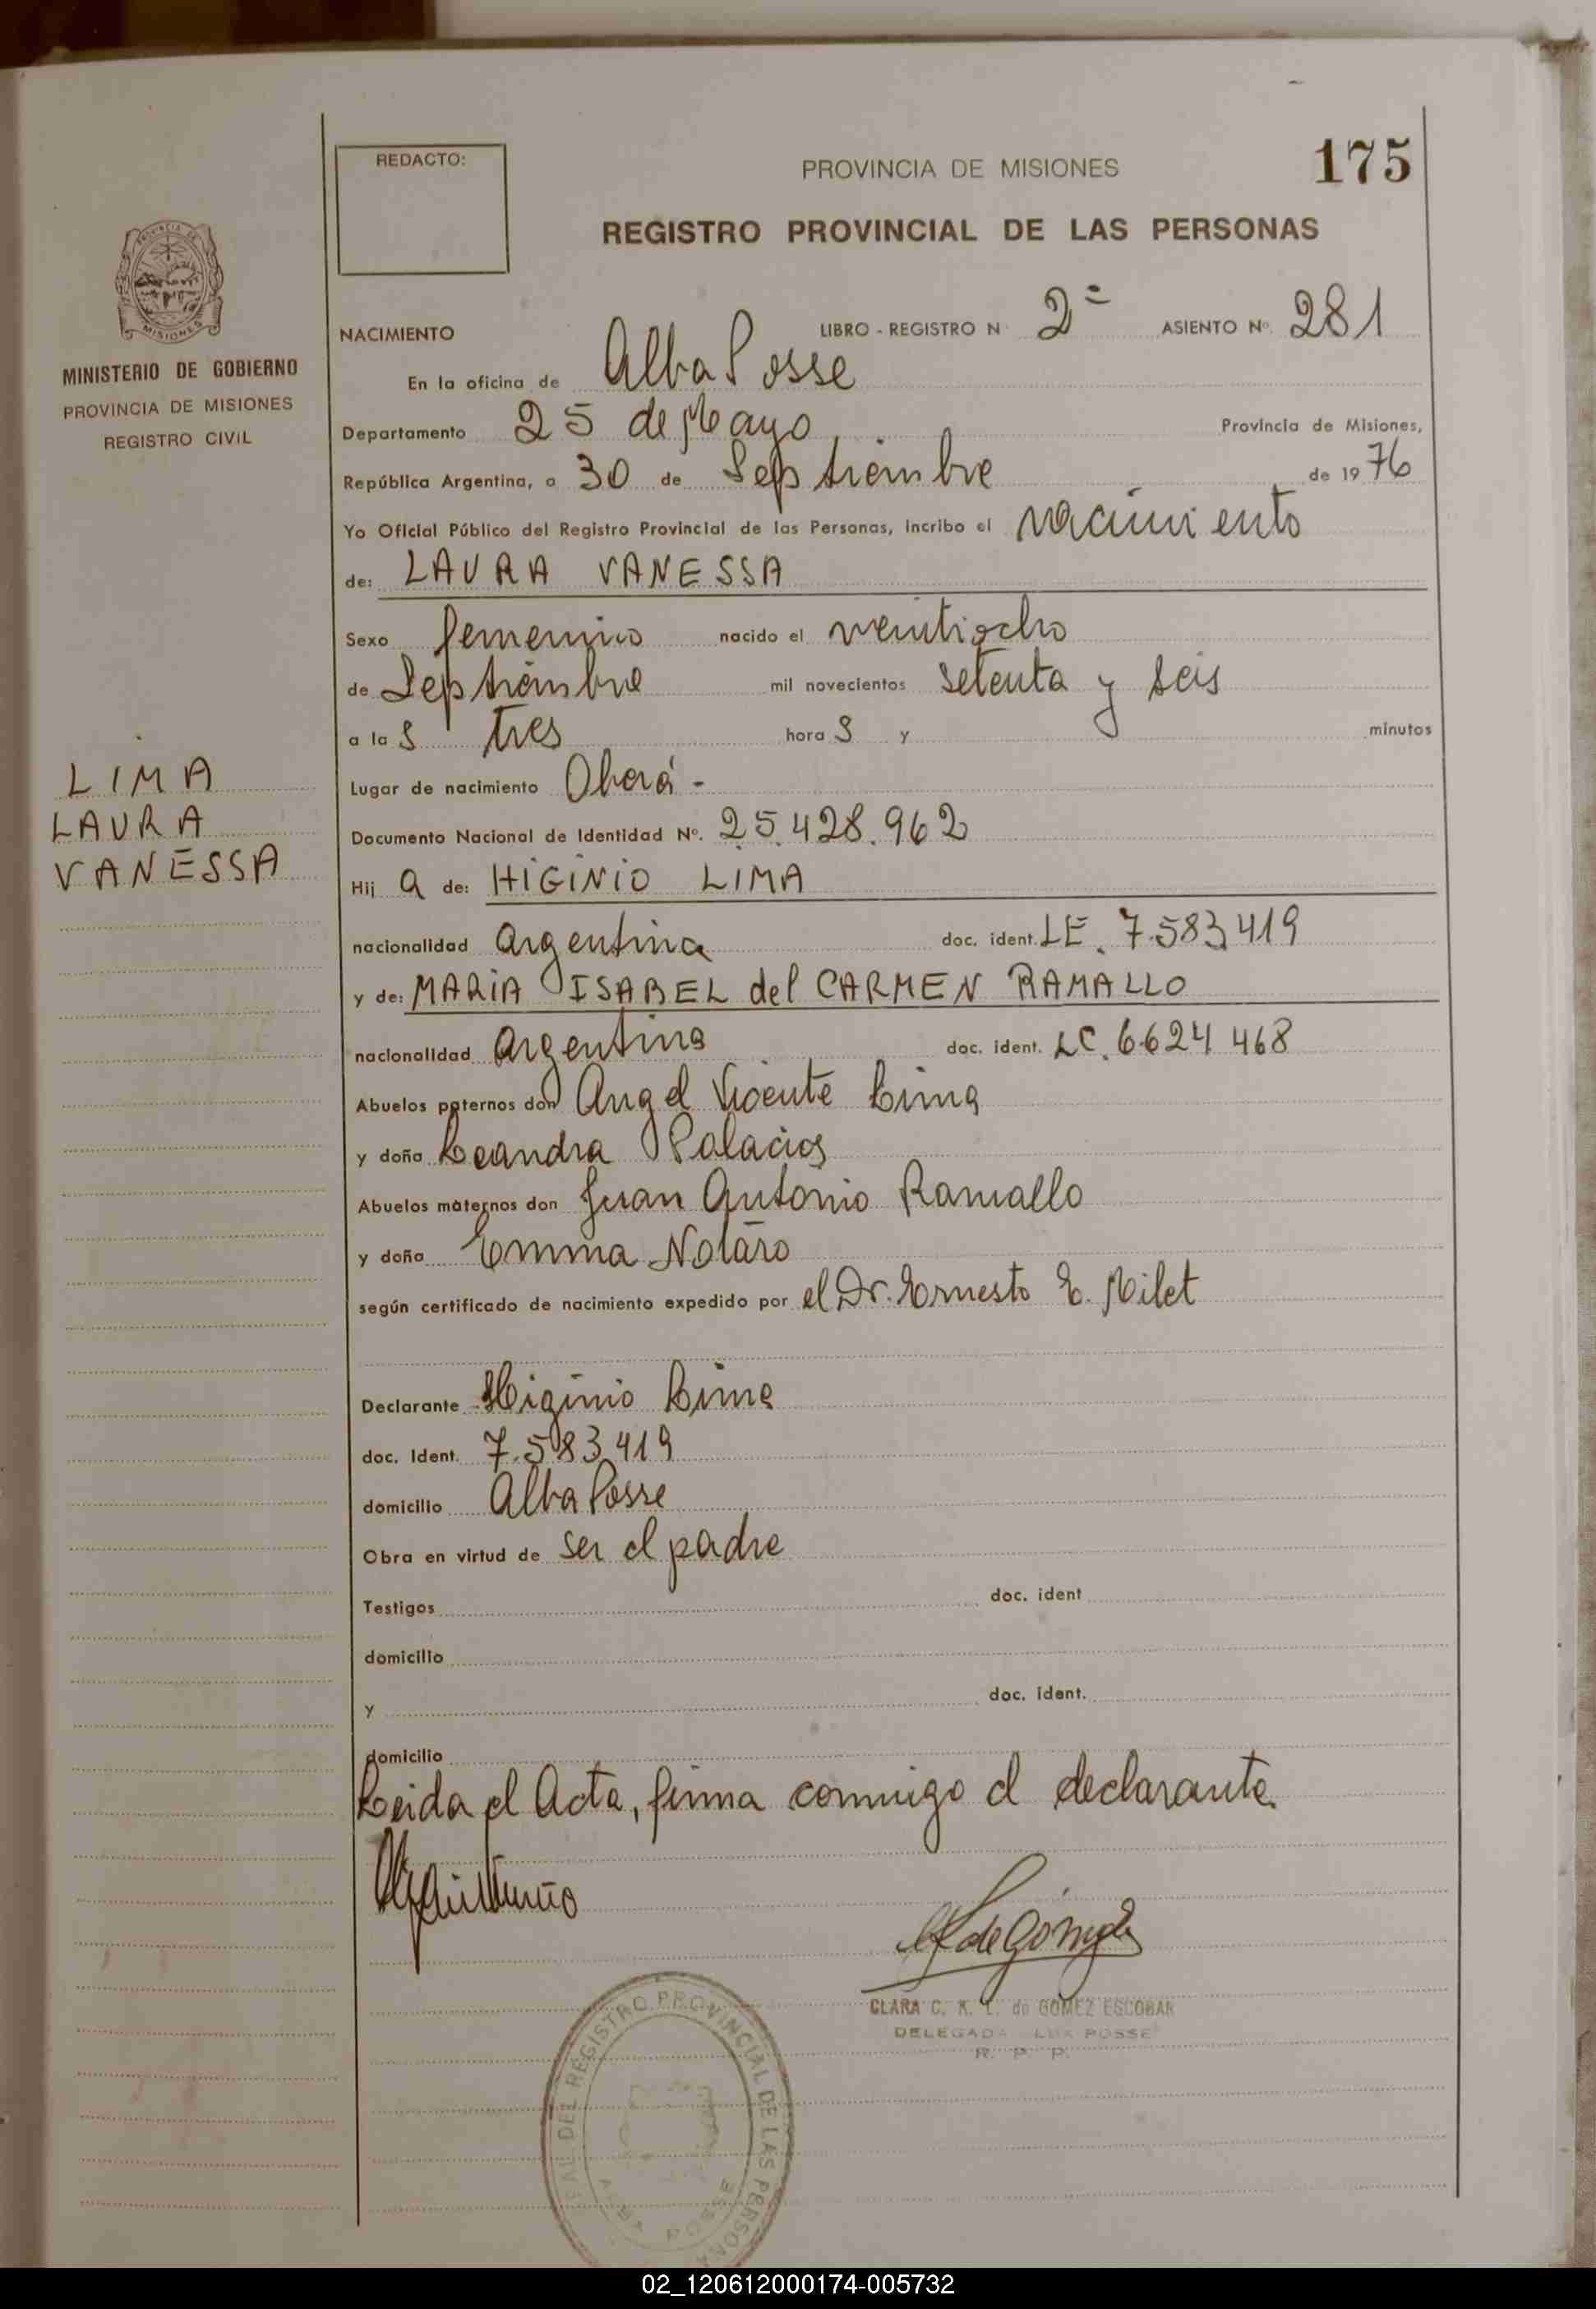 REDACTO:
PROVINCIA DE MISIONES
175
REGISTRO PROVINCIAL DE LAS PERSONAS
MINISTERIO DE GOBIERNO
PROVINCIA DE MISIONES
REGISTRO CIVIL
NACIMIENTO LIBRO - REGISTRO N 2º ASIENTO Nº. 281
En la oficina de Alba Posse
Departamento 25 de Mayo Provincia de Misiones,
República Argentina, a 30 de Septiembre de 1976
Yo Oficial Público del Registro Provincial de las Personas, incribo el nacimiento
de: LAURA VANESSA
Sexo femenino nacido el veintiocho
de Septiembre mil novecientos setenta y seis
a las tres horas y minutos
Lugar de nacimiento Oberá -
Documento Nacional de Identidad Nº. 25.428.962
Hija de: HIGINIO LIMA
nacionalidad argentina doc. ident. LE. 7.583.419
y de: MARIA ISABEL del CARMEN RAMALLO
nacionalidad argentina doc. ident. LC. 6.624 468
Abuelos paternos don Angel Vicente Lima
y doña Leandra Palacios
Abuelos maternos don Juan Antonio Ramallo
y doña Emma Notaro
según certificado de nacimiento expedido por el Dr. Ernesto E. Milet
Declarante Higinio Lima
doc. Ident. 7.583.419
domicilio Alba Posse
Obra en virtud de ser el padre
Testigos doc. ident
domicilio
y doc. ident.
domicilio
Leida el Acta, firma conmigo el declarante.
LIMA
LAURA
VANESSA
CLARA C. K. L. de GOMEZ ESCOBAR
DELEGADA POSSE
R. P. P.
DEL REGISTRO PROVINCIAL DE LAS PERSONAS
POSSE
02_120612000174-005732